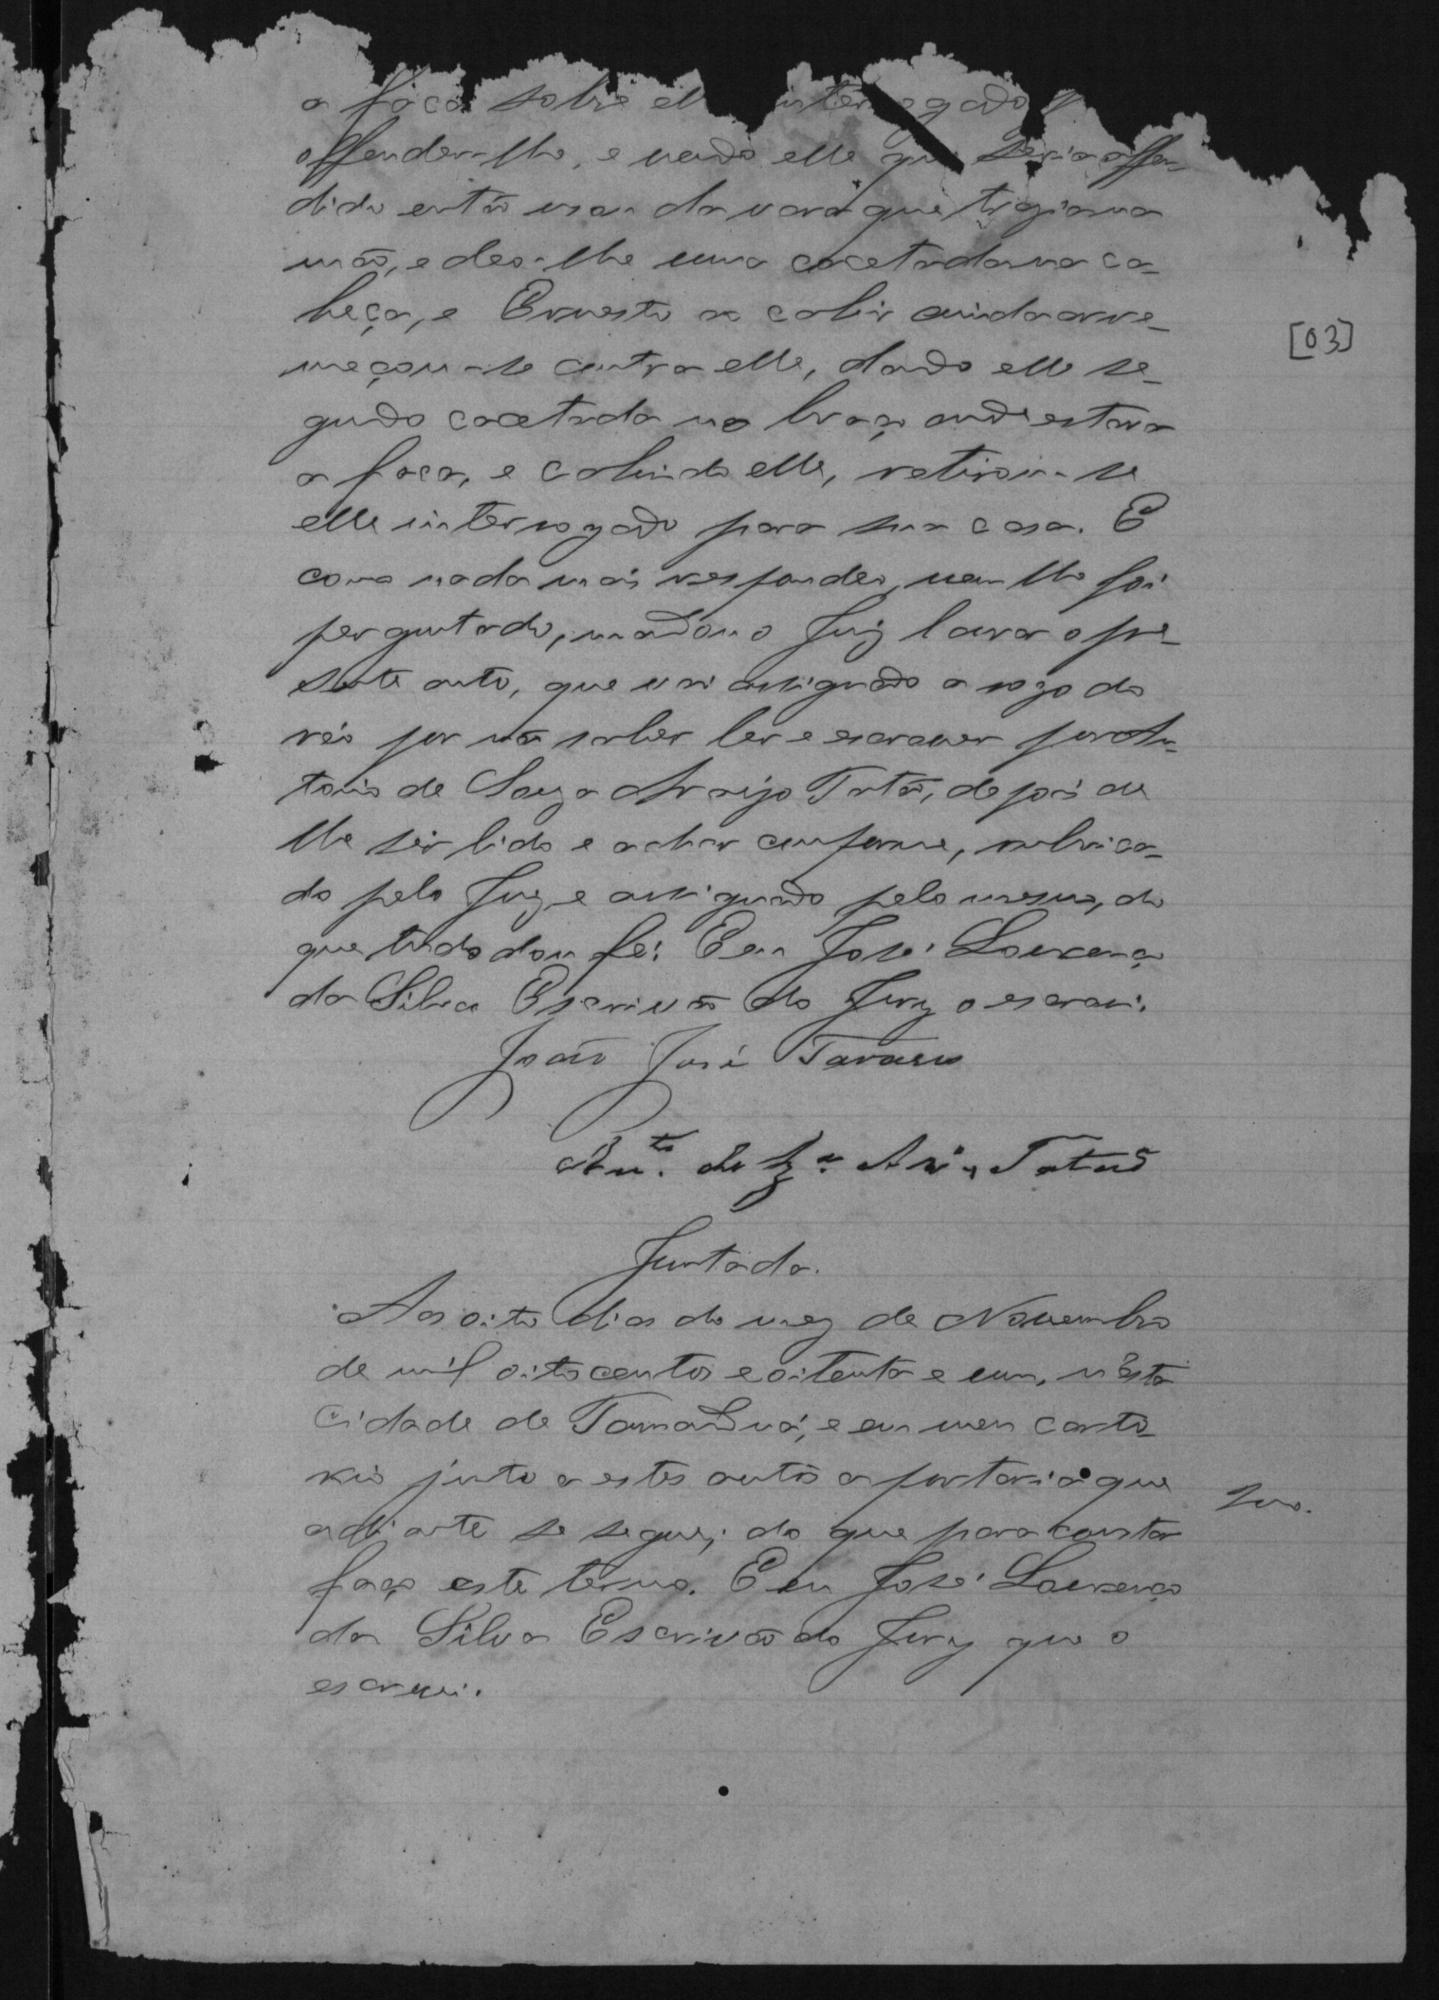 a faca sobre elle interrogado
offender-lhe, e vendo elle que seria offen-
dido então usou da vara que trazia na
mão, e deo-lhe uma cacetada na ca-
beça, e Ernesto ao cahir ainda arre-
meçou-se contra elle, dando elle se-
gundo cacetada no braço onde estava
a faca, e cahindo elle, retirou-se
elle interrogado para sua casa. E
como nada mais respondeo, nem lhe foi
perguntado, mandou o Juiz lavrar o pre-
sente auto, que vai assignado a rogo do
réo por não saber ler e escrever por An-
tonio de Souza Araujo Tatão, depois de
lhe ser lido e achar conforme, rubrica-
do pelo Juiz e assignado pelo mesmo, do
que tudo dou fé. Eu José Lourenço
da Silva Escrivão do Jury o escrevi.
João José Tavares
Ant.º de Sz.ª Tatão
Juntada.
Aos oito dias do mez de Novembro
de mil oitocentos e oitenta e um, n'esta
Cidade de Tamanduá, e em meu carto-
rio junto a estes autos a portaria que
adiante se segue; do que para constar
faço este termo. Eu José Lourenço
da Silva Escrivão do Jury que o
escrevi.
[03]